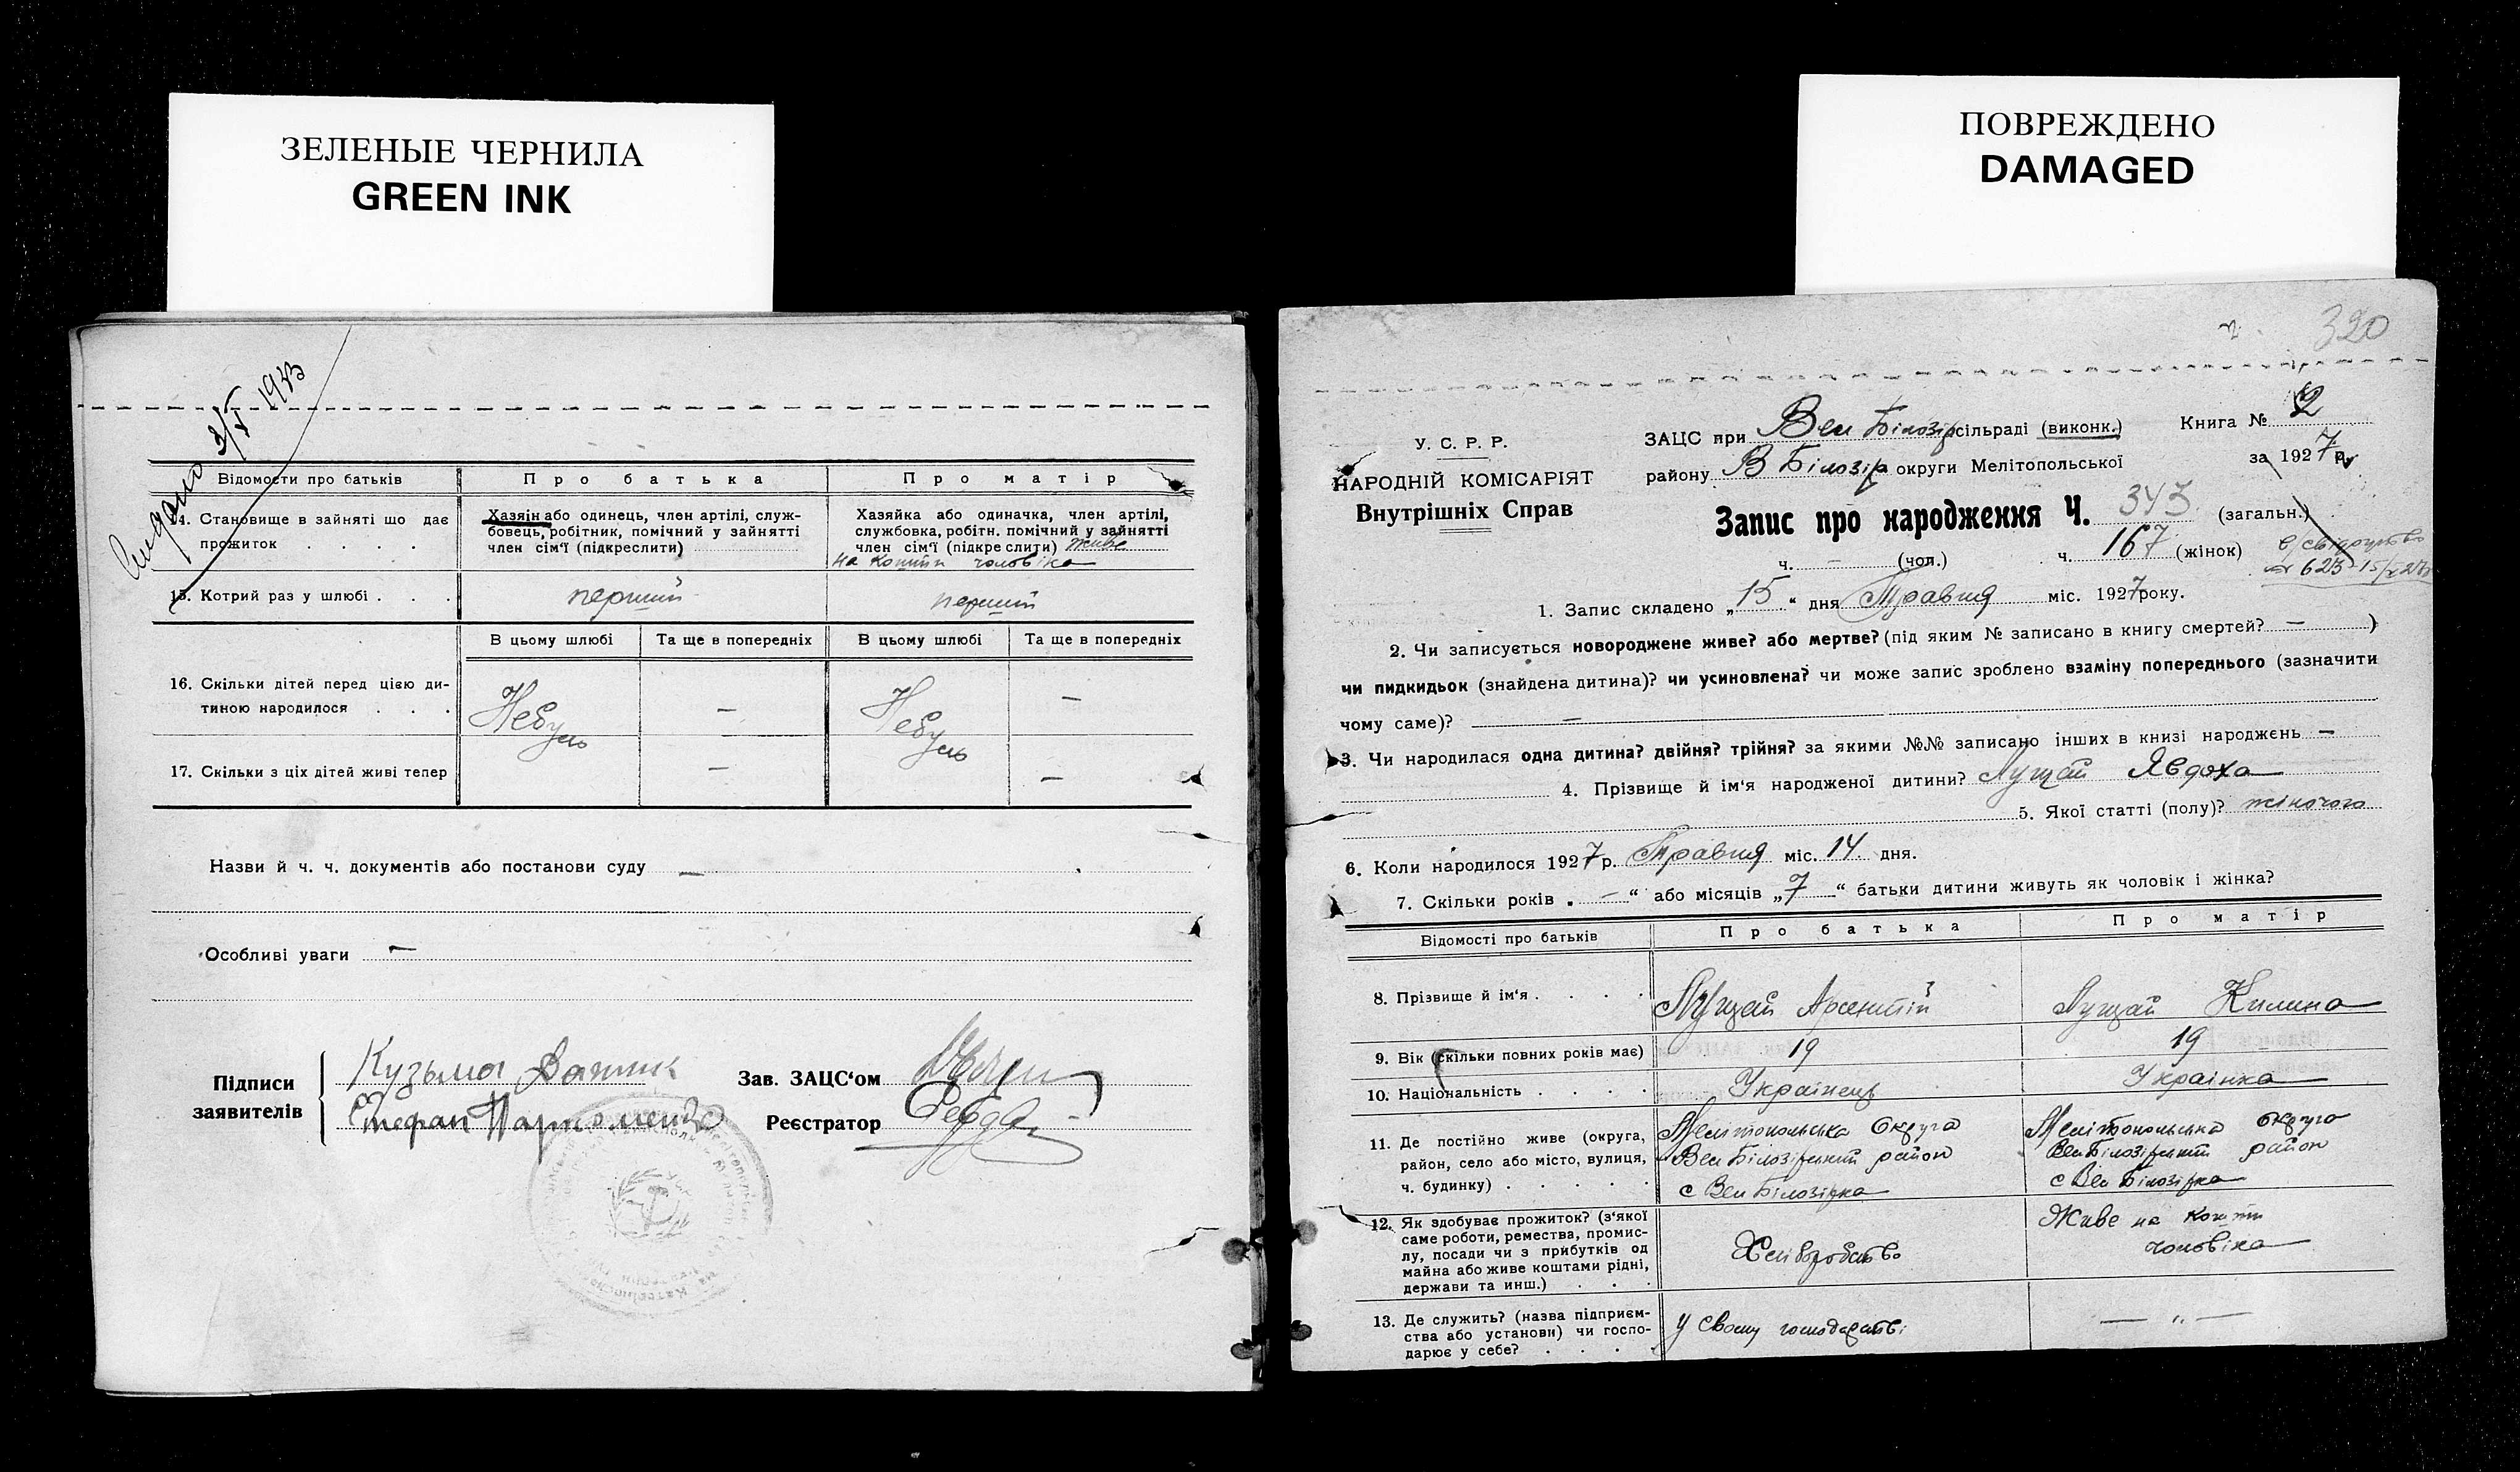 ЗЕЛЕНЫЕ ЧЕРНИЛА
GREEN INK
ПОВРЕЖДЕНО
DAMAGED
1933
Відомости про батьків
Про батька
Про матір
14. Становище в зайняті що дає
прожиток . . . .
Хазяін або одинець, член артілі, служ-
бовець, робітник, помічний у зайнятті
член сім'ї (підкреслити)
Хазяйка або одиначка, член артілі,
службовка, робітн. помічний у зайнятті
член сім'ї (підкреслити) живе
на кошти чоловіка
15. Котрий раз у шлюбі . . .
перший
перший
В цьому шлюбі
Та ще в попередніх
В цьому шлюбі
Та ще в попередніх
16. Скільки дітей перед цією ди-
тиною народилося . . .
Небуль
—
Небуль
—
17. Скільки з ціх дітей живі тепер
—
—
Назви й ч. ч. документів або постанови суду —
Особливі уваги —
Підписи
заявителів
Кузьма
Стефан Пархоменко
Зав. ЗАЦС'ом
Реєстратор
320
У. С. Р. Р.
НАРОДНІЙ КОМІСАРІЯТ
Внутрішніх Справ
ЗАЦС при Вел Білозір сільраді (виконк.)
Книга № 2
району В Білозір округи Мелітопольської
за 1927 р.
Запис про народження Ч. 343 (загальн.)
ч. — (чол.) ч. 167 (жінок)
623 15/
1. Запис складено „15“ дня Травня міс. 1927 року.
2. Чи записується новороджене живе? або мертве? (під яким № записано в книгу смертей? — )
чи пидкидьок (знайдена дитина)? чи усиновлена? чи може запис зроблено взаміну попереднього (зазначити
чому саме)? —
3. Чи народилася одна дитина? двійня? трійня? за якими №№ записано інших в книзі народжень —
4. Прізвище й ім'я народженої дитини? Лущай Явдоха
5. Якої статті (полу)? жіночого
6. Коли народилося 1927 р. Травня міс. 14 дня.
7. Скільки років . — “ або місяців „7“ батьки дитини живуть як чоловік і жінка?
Відомості про батьків
Про батька
Про матір
8. Прізвище й ім'я . . . .
Лущай Арсентій
Лущай Килина
9. Вік (скільки повних років має)
19
19
10. Національність . . . .
Українець
Українка
11. Де постійно живе (округа,
район, село або місто, вулиця,
ч. будинку) . . . . .
Мелітопольська Округа
Вел Білозірський район
с Вел Білозірка
Мелітопольська округа
Вел Білозірський район
с Вел Білозірка
12. Як здобуває прожиток? (з'якої
саме роботи, ремества, промис-
лу, посади чи з прибутків од
майна або живе коштами рідні,
держави та инш.) . . .
Хліборобство
Живе на кошти
чоловіка
13. Де служить? (назва підприєм-
ства або установи) чи госпо-
дарює у себе? . . . .
у своєму господарстві
— „ —